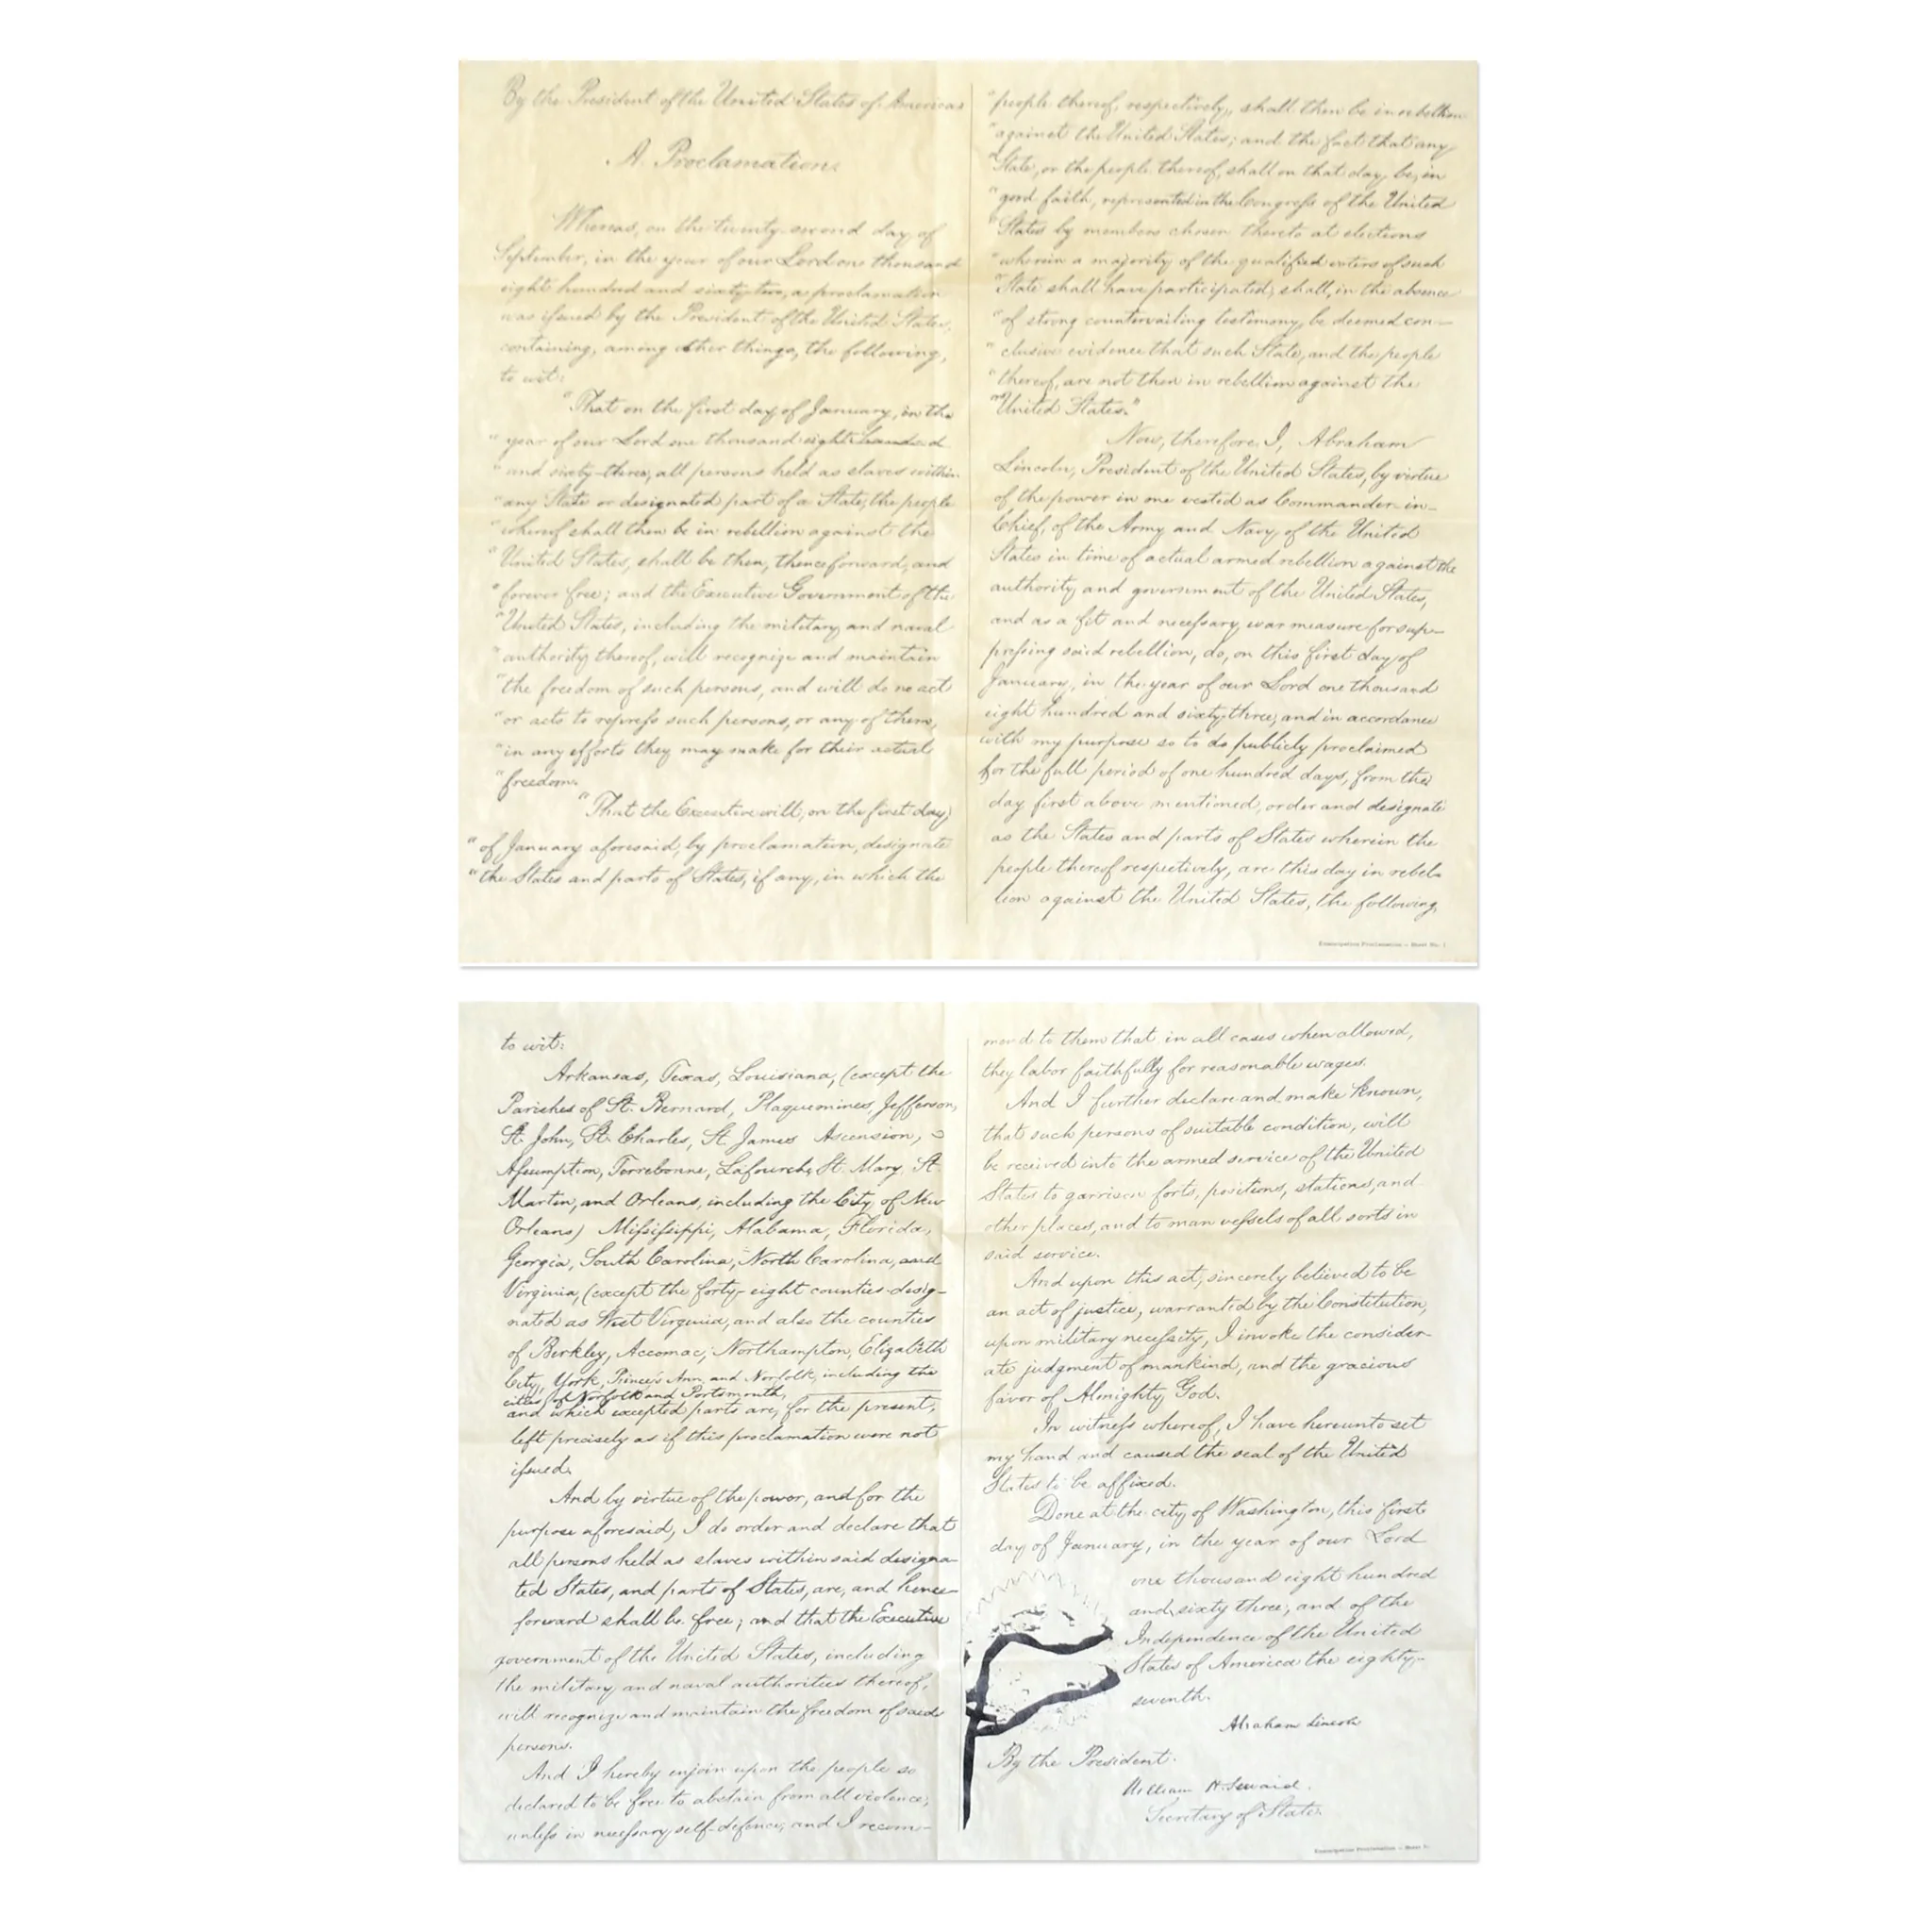 By the President of the United States of America:
A Proclamation.
Whereas, on the twenty-second day of
September, in the year of our Lord one thousand
eight hundred and sixty-two, a proclamation
was issued by the President of the United States,
containing, among other things, the following,
to wit:
"That on the first day of January, in the
"year of our Lord one thousand eight hundred
"and sixty-three, all persons held as slaves within
"any State or designated part of a State, the people
"whereof shall then be in rebellion against the
"United States, shall be then, thenceforward, and
"forever free; and the Executive Government of the
"United States, including the military and naval
"authority thereof, will recognize and maintain
"the freedom of such persons, and will do no act
"or acts to repress such persons, or any of them,
"in any efforts they may make for their actual
"freedom.
"That the Executive will, on the first day
"of January aforesaid, by proclamation, designate
"the States and parts of States, if any, in which the
"people thereof, respectively, shall then be in rebellion
"against the United States; and the fact that any
"State, or the people thereof, shall on that day be, in
"good faith, represented in the Congress of the United
"States by members chosen thereto at elections
"wherein a majority of the qualified voters of such
"State shall have participated, shall, in the absence
"of strong countervailing testimony, be deemed con-
"clusive evidence that such State, and the people
"thereof, are not then in rebellion against the
"United States."
Now, therefore I, Abraham
Lincoln, President of the United States, by virtue
of the power in me vested as Commander-in-
Chief, of the Army and Navy of the United
States in time of actual armed rebellion against the
authority and government of the United States,
and as a fit and necessary war measure for sup-
pressing said rebellion, do, on this first day of
January, in the year of our Lord one thousand
eight hundred and sixty-three, and in accordance
with my purpose so to do publicly proclaimed
for the full period of one hundred days, from the
day first above mentioned, order and designate
as the States and parts of States wherein the
people thereof respectively, are this day in rebel-
lion against the United States, the following,
Emancipation Proclamation – Sheet No. 1
to wit:
Arkansas, Texas, Louisiana, (except the
Parishes of St. Bernard, Plaquemines, Jefferson,
St. John, St. Charles, St. James Ascension,
Assumption, Terrebonne, Lafourche, St. Mary, St.
Martin, and Orleans, including the City of New
Orleans) Mississippi, Alabama, Florida,
Georgia, South Carolina, North Carolina, and
Virginia, (except the forty-eight counties desig-
nated as West Virginia, and also the counties
of Berkley, Accomac, Northampton, Elizabeth
City, York, Princess Ann, and Norfolk, including the
cities of Norfolk and Portsmouth,
and which excepted parts are, for the present,
left precisely as if this proclamation were not
issued.
And by virtue of the power, and for the
purpose aforesaid, I do order and declare that
all persons held as slaves within said designa-
ted States, and parts of States, are, and hence-
forward shall be free; and that the Executive
government of the United States, including
the military and naval authorities thereof,
will recognize and maintain the freedom of said
persons.
And I hereby enjoin upon the people so
declared to be free to abstain from all violence,
unless in necessary self-defence; and I recom-
mend to them that, in all cases when allowed,
they labor faithfully for reasonable wages.
And I further declare and make known,
that such persons of suitable condition, will
be received into the armed service of the United
States to garrison forts, positions, stations, and
other places, and to man vessels of all sorts in
said service.
And upon this act, sincerely believed to be
an act of justice, warranted by the Constitution,
upon military necessity, I invoke the consider-
ate judgment of mankind, and the gracious
favor of Almighty God.
In witness whereof, I have hereunto set
my hand and caused the seal of the United
States to be affixed.
Done at the city of Washington, this first
day of January, in the year of our Lord
one thousand eight hundred
and sixty three, and of the
Independence of the United
States of America the eighty-
seventh.
Abraham Lincoln
By the President:
William H. Seward,
Secretary of State.
Emancipation Proclamation – Sheet